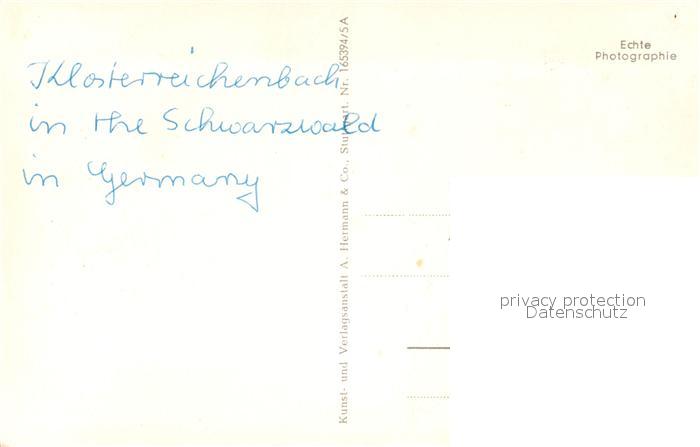 Klosterreichenbach
in the Schwarzwald
in Germany
Kunst- und Verlagsanstalt A. Hermann & Co., Stuttgart. Nr. 165394/5 A
Echte
Photographie
privacy protection
Datenschutz